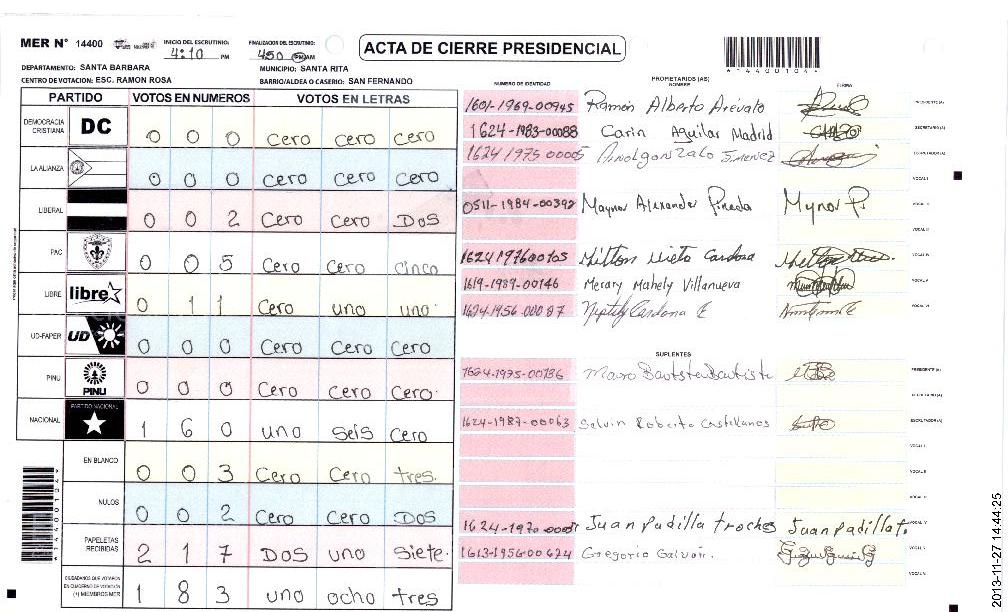 MER N° 14400
INICIO DEL ESCRUTINIO: 4:10 PM
FINALIZACION DEL ESCRUTINIO: 450 PM AM
ACTA DE CIERRE PRESIDENCIAL
*14400104*
DEPARTAMENTO: SANTA BARBARA
MUNICIPIO: SANTA RITA
CENTRO DE VOTACION: ESC. RAMON ROSA
BARRIO/ALDEA O CASERIO: SAN FERNANDO
PARTIDO VOTOS EN NUMEROS VOTOS EN LETRAS
DEMOCRACIA CRISTIANA DC 0 0 0 cero cero cero
LA ALIANZA 0 0 0 cero cero cero
LIBERAL 0 0 2 cero cero Dos
PAC 0 0 5 cero cero cinco
LIBRE libre 0 1 1 cero uno uno
UD-FAPER UD 0 0 0 cero cero cero
PINU PINU 0 0 0 cero cero cero
NACIONAL PARTIDO NACIONAL 1 6 0 uno seis cero
EN BLANCO 0 0 3 cero cero tres
NULOS 0 0 2 cero cero Dos
PAPELETAS RECIBIDAS 2 1 7 Dos uno siete
CIUDADANOS QUE VOTARON EN CUADERNO DE VOTACION (+) MIEMBROS MER 1 8 3 uno ocho tres
PROPIETARIOS (AS)
NUMERO DE IDENTIDAD NOMBRE FIRMA
1601-1969-00945 Ramón Alberto Arévalo PRESIDENTE (A)
1624-1983-00088 Carin Aguilar Madrid SECRETARIO (A)
1624 1975 00005 ESCRUTADOR (A)
VOCAL I
0511-1984-00392 Maynor Alexander Pineda Mynor P. VOCAL II
VOCAL III
1624 1976 00105 Milton Nieto Cardona VOCAL IV
1619-1989-00146 Merary Mahely Villanueva VOCAL V
1624-1956-00087 Cardona VOCAL VI
SUPLENTES
1624-1975-00136 Mauro Bautista Bautista PRESIDENTE (A)
SECRETARIO (A)
1624-1987-00063 Selvin Roberto Castellanos ESCRUTADOR (A)
VOCAL I
VOCAL II
VOCAL III
1624-1970 Juan padilla troches Juan padilla t. VOCAL IV
1613-1956-00624 Gregorio Galvan. VOCAL V
VOCAL VI
*14400104*
2013-11-27 14:44:25